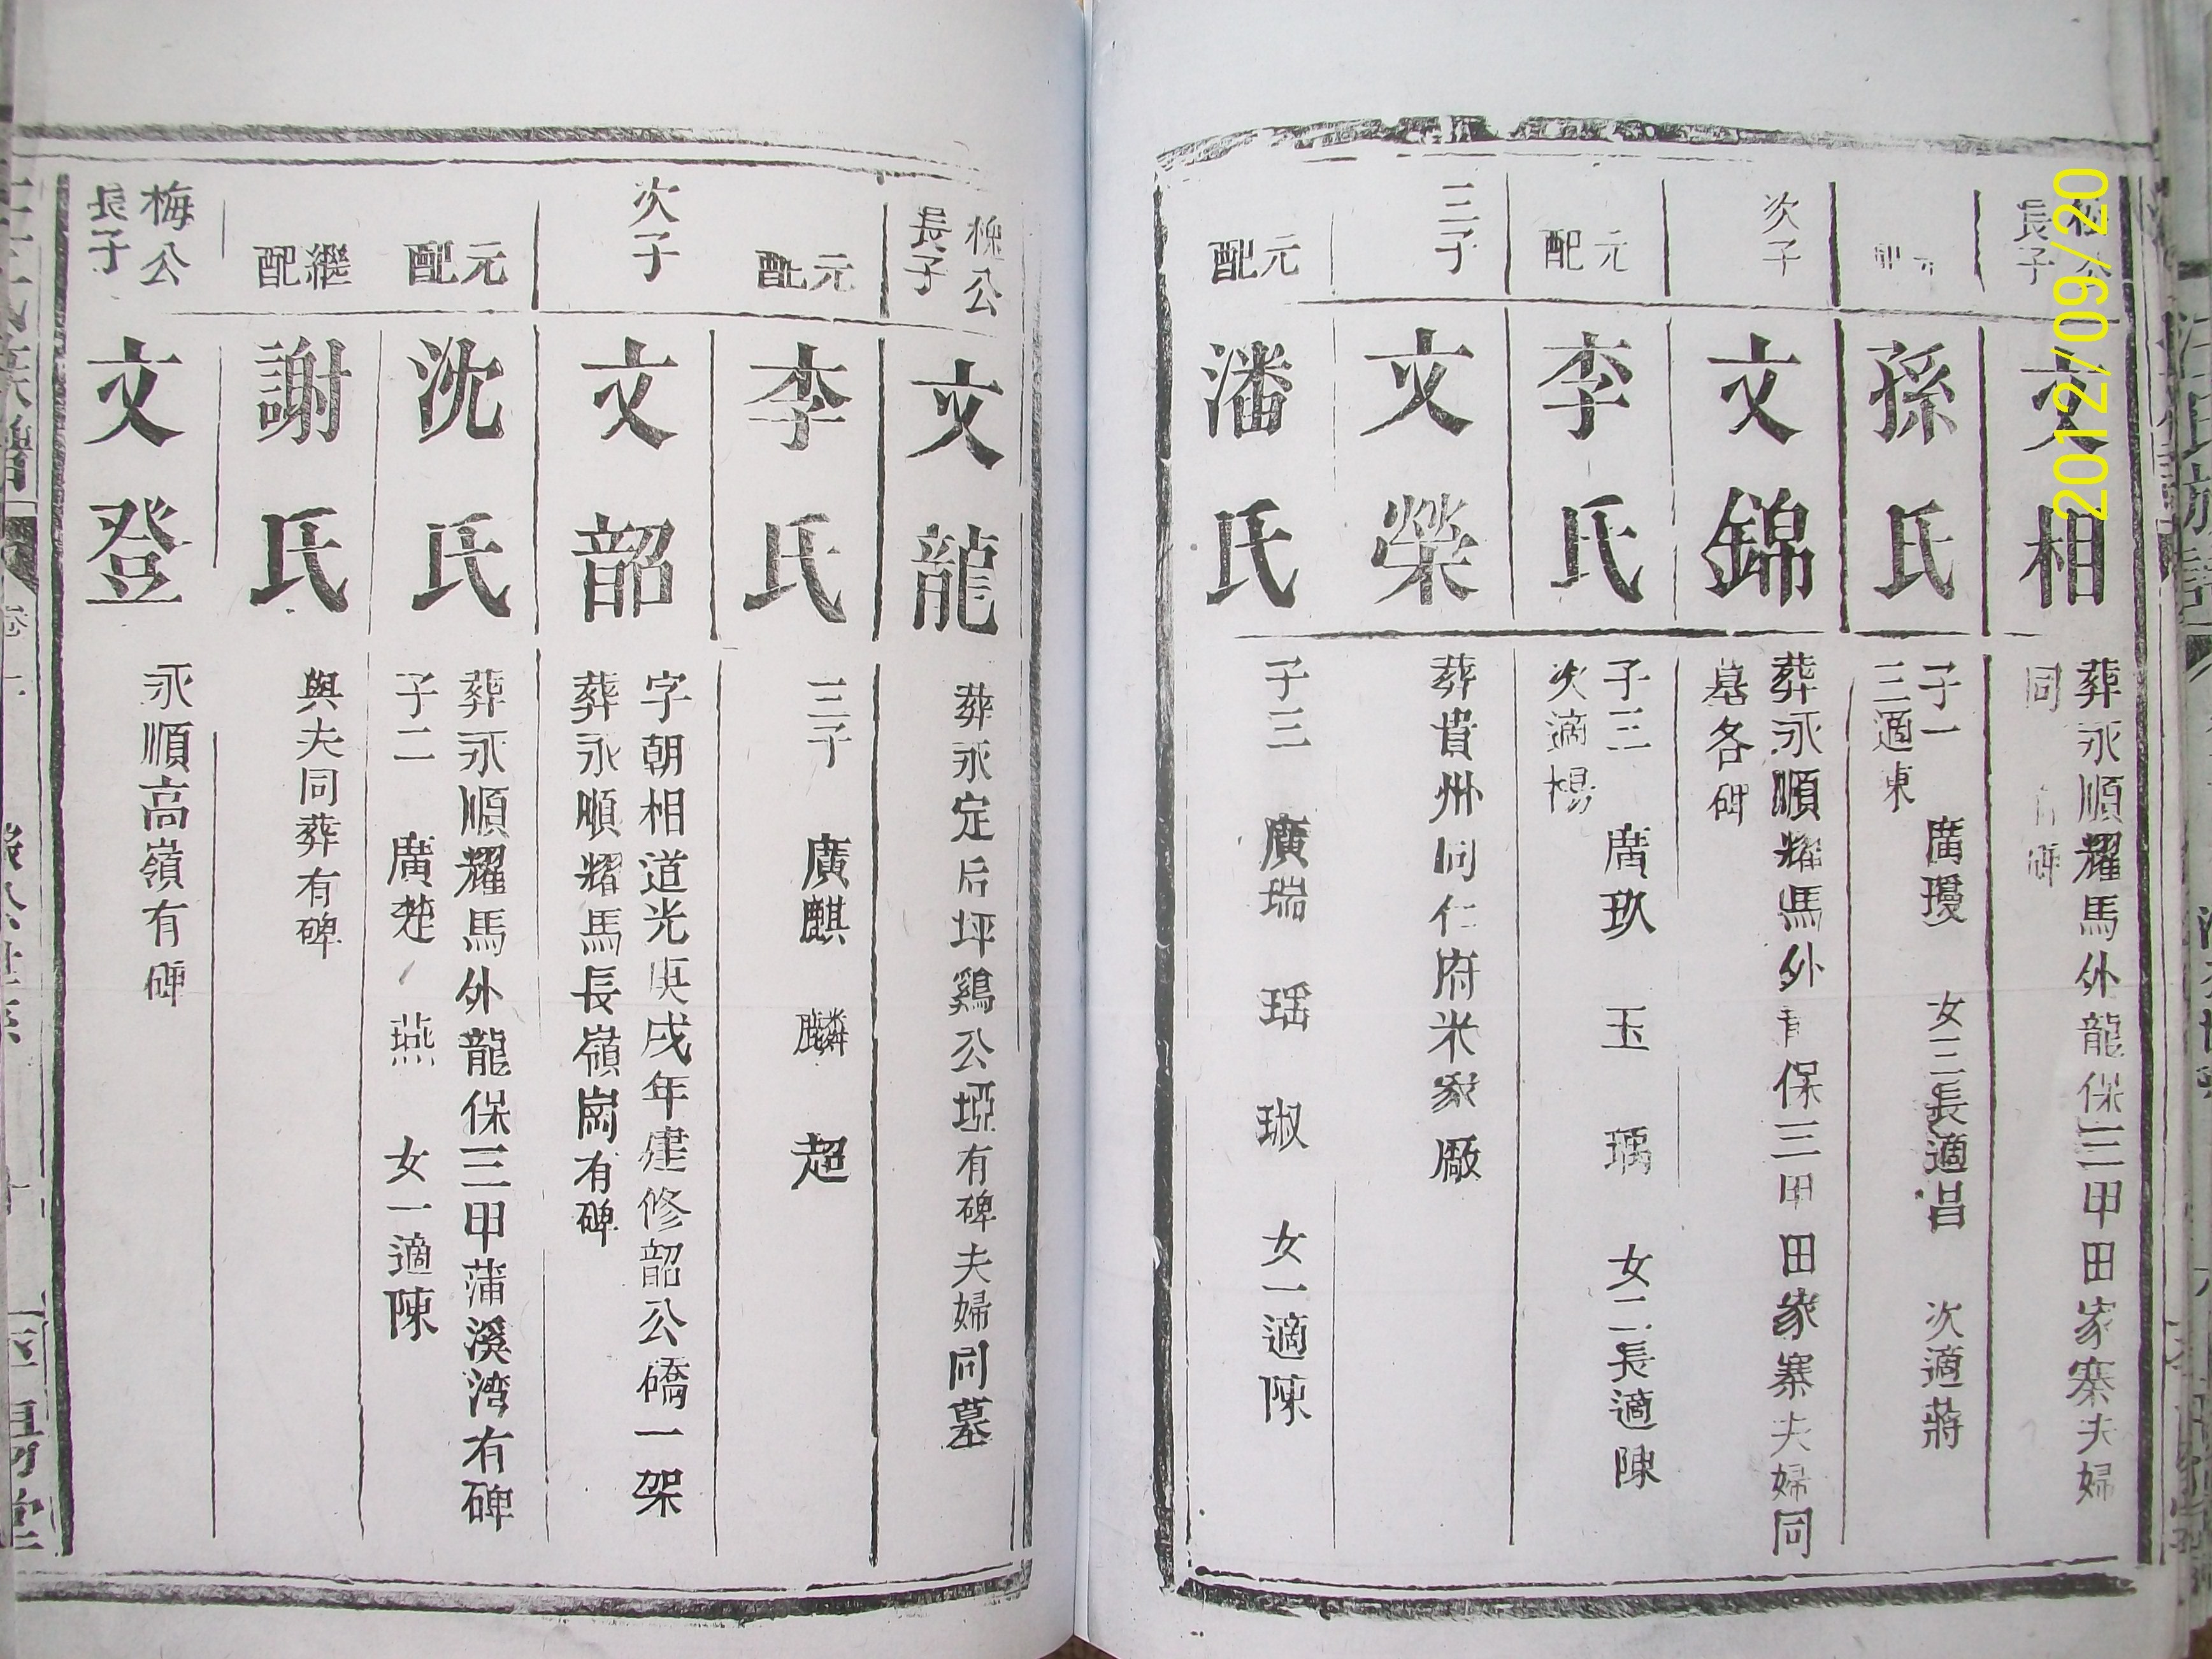 長子
文相
葬永順耀馬外龍保三甲田家寨夫婦
同
碑
孫氏
子一 廣瓊 女三長適昌 次適蔣
三適東
次子
文錦
葬永順耀馬外 保三甲田家寨夫婦同
墓各碑
元配
李氏
子三 廣玖 玉 瑀 女二長適陳
次適楊
三子
文榮
葬貴州同仁府米家廠
元配
潘氏
子三 廣瑞 瑶 琡 女一適陳
槐公
長子
文龍
葬永定后坪鷄公埡有碑夫婦同墓
元配
李氏
三子 廣麒 麟 超
次子
文韶
字朝相道光庚戌年建修韶公礄一架
葬永順耀馬長嶺崗有碑
元配
沈氏
葬永順耀馬外龍保三甲蒲溪湾有碑
子二 廣楚 燕 女一適陳
繼配
謝氏
與夫同葬有碑
梅公
長子
文登
永順高嶺有碑
2012/09/20